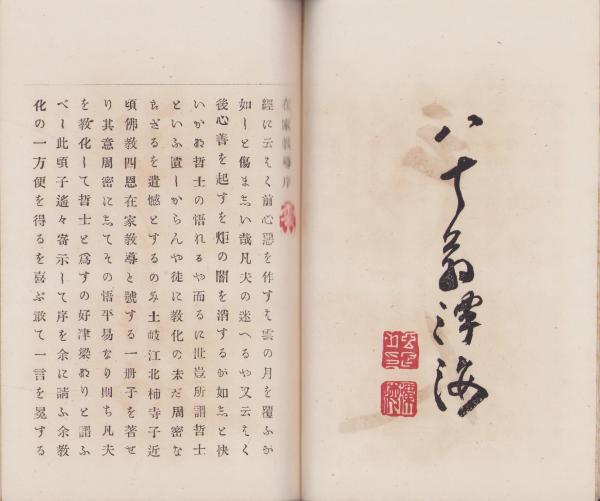 八十翁澤海
在家教導序
經に云えく前心惡を作すえ雲の月を覆ふが
如しと傷ましい哉凡夫の迷へるや又云えく
後心善を起すを炬の闇を消するが如しと快
いかぬ哲士の悟れるや而るに世豈所謂哲士
といふ置しからんや徒に教化の未だ周密な
らざるを遺憾とするのみ土岐江北柿寺子近
頃佛教四恩在家教導と號する一冊子を著せ
り其意周密にしてその悟平易なり則ち凡夫
を教化して哲士と爲すの好津梁ぬりと謂ふ
べし此頃子遙々寄示して序を余に請ふ余教
化の一方便を得るを喜ぶ敢て一言を冕する